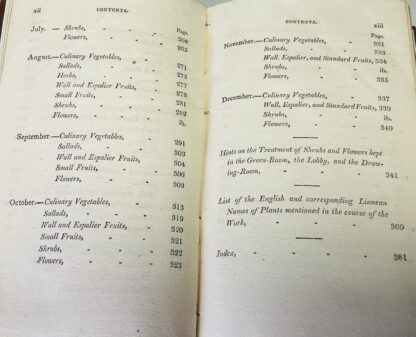 xii CONTENTS.
Page.
July.— Shrubs, - - - 264
Flowers, - - - 265
August.—Culinary Vegetables, - 271
Sallads, - - - 275
Herbs, - - - 276
Wall and Espalier Fruits, - 277
Small Fruits, - - 278
Shrubs, - - - 281
Flowers, - - - 282
ib.
September.—Culinary Vegetables, - 291
Sallads, - - - 303
Wall and Espalier Fruits, - 304
Small Fruits, - - 306
Flowers, - - - 308
October.—Culinary Vegetables, - 313
Sallads, - - - 319
Wall and Espalier Fruits, - 320
Small Fruits, - - 321
Shrubs, - - - 322
Flowers, - - - 323
CONTENTS. xiii
Page.
November.—Culinary Vegetables, - 331
Sallads, - - - 333
Wall, Espalier, and Standard Fruits, 334
Shrubs, - - - ib.
Flowers, - - - 335
December.—Culinary Vegetables, - 337
Wall, Espalier, and Standard Fruits, 339
Shrubs, - - - ib.
Flowers, - - - 340
Hints on the Treatment of Shrubs and Flowers kept
in the Green-Room, the Lobby, and the Draw-
ing-Room, - - - 341
List of the English and corresponding Linnean
Names of Plants mentioned in the course of the
Work, - - - 369
Index, - - - 381